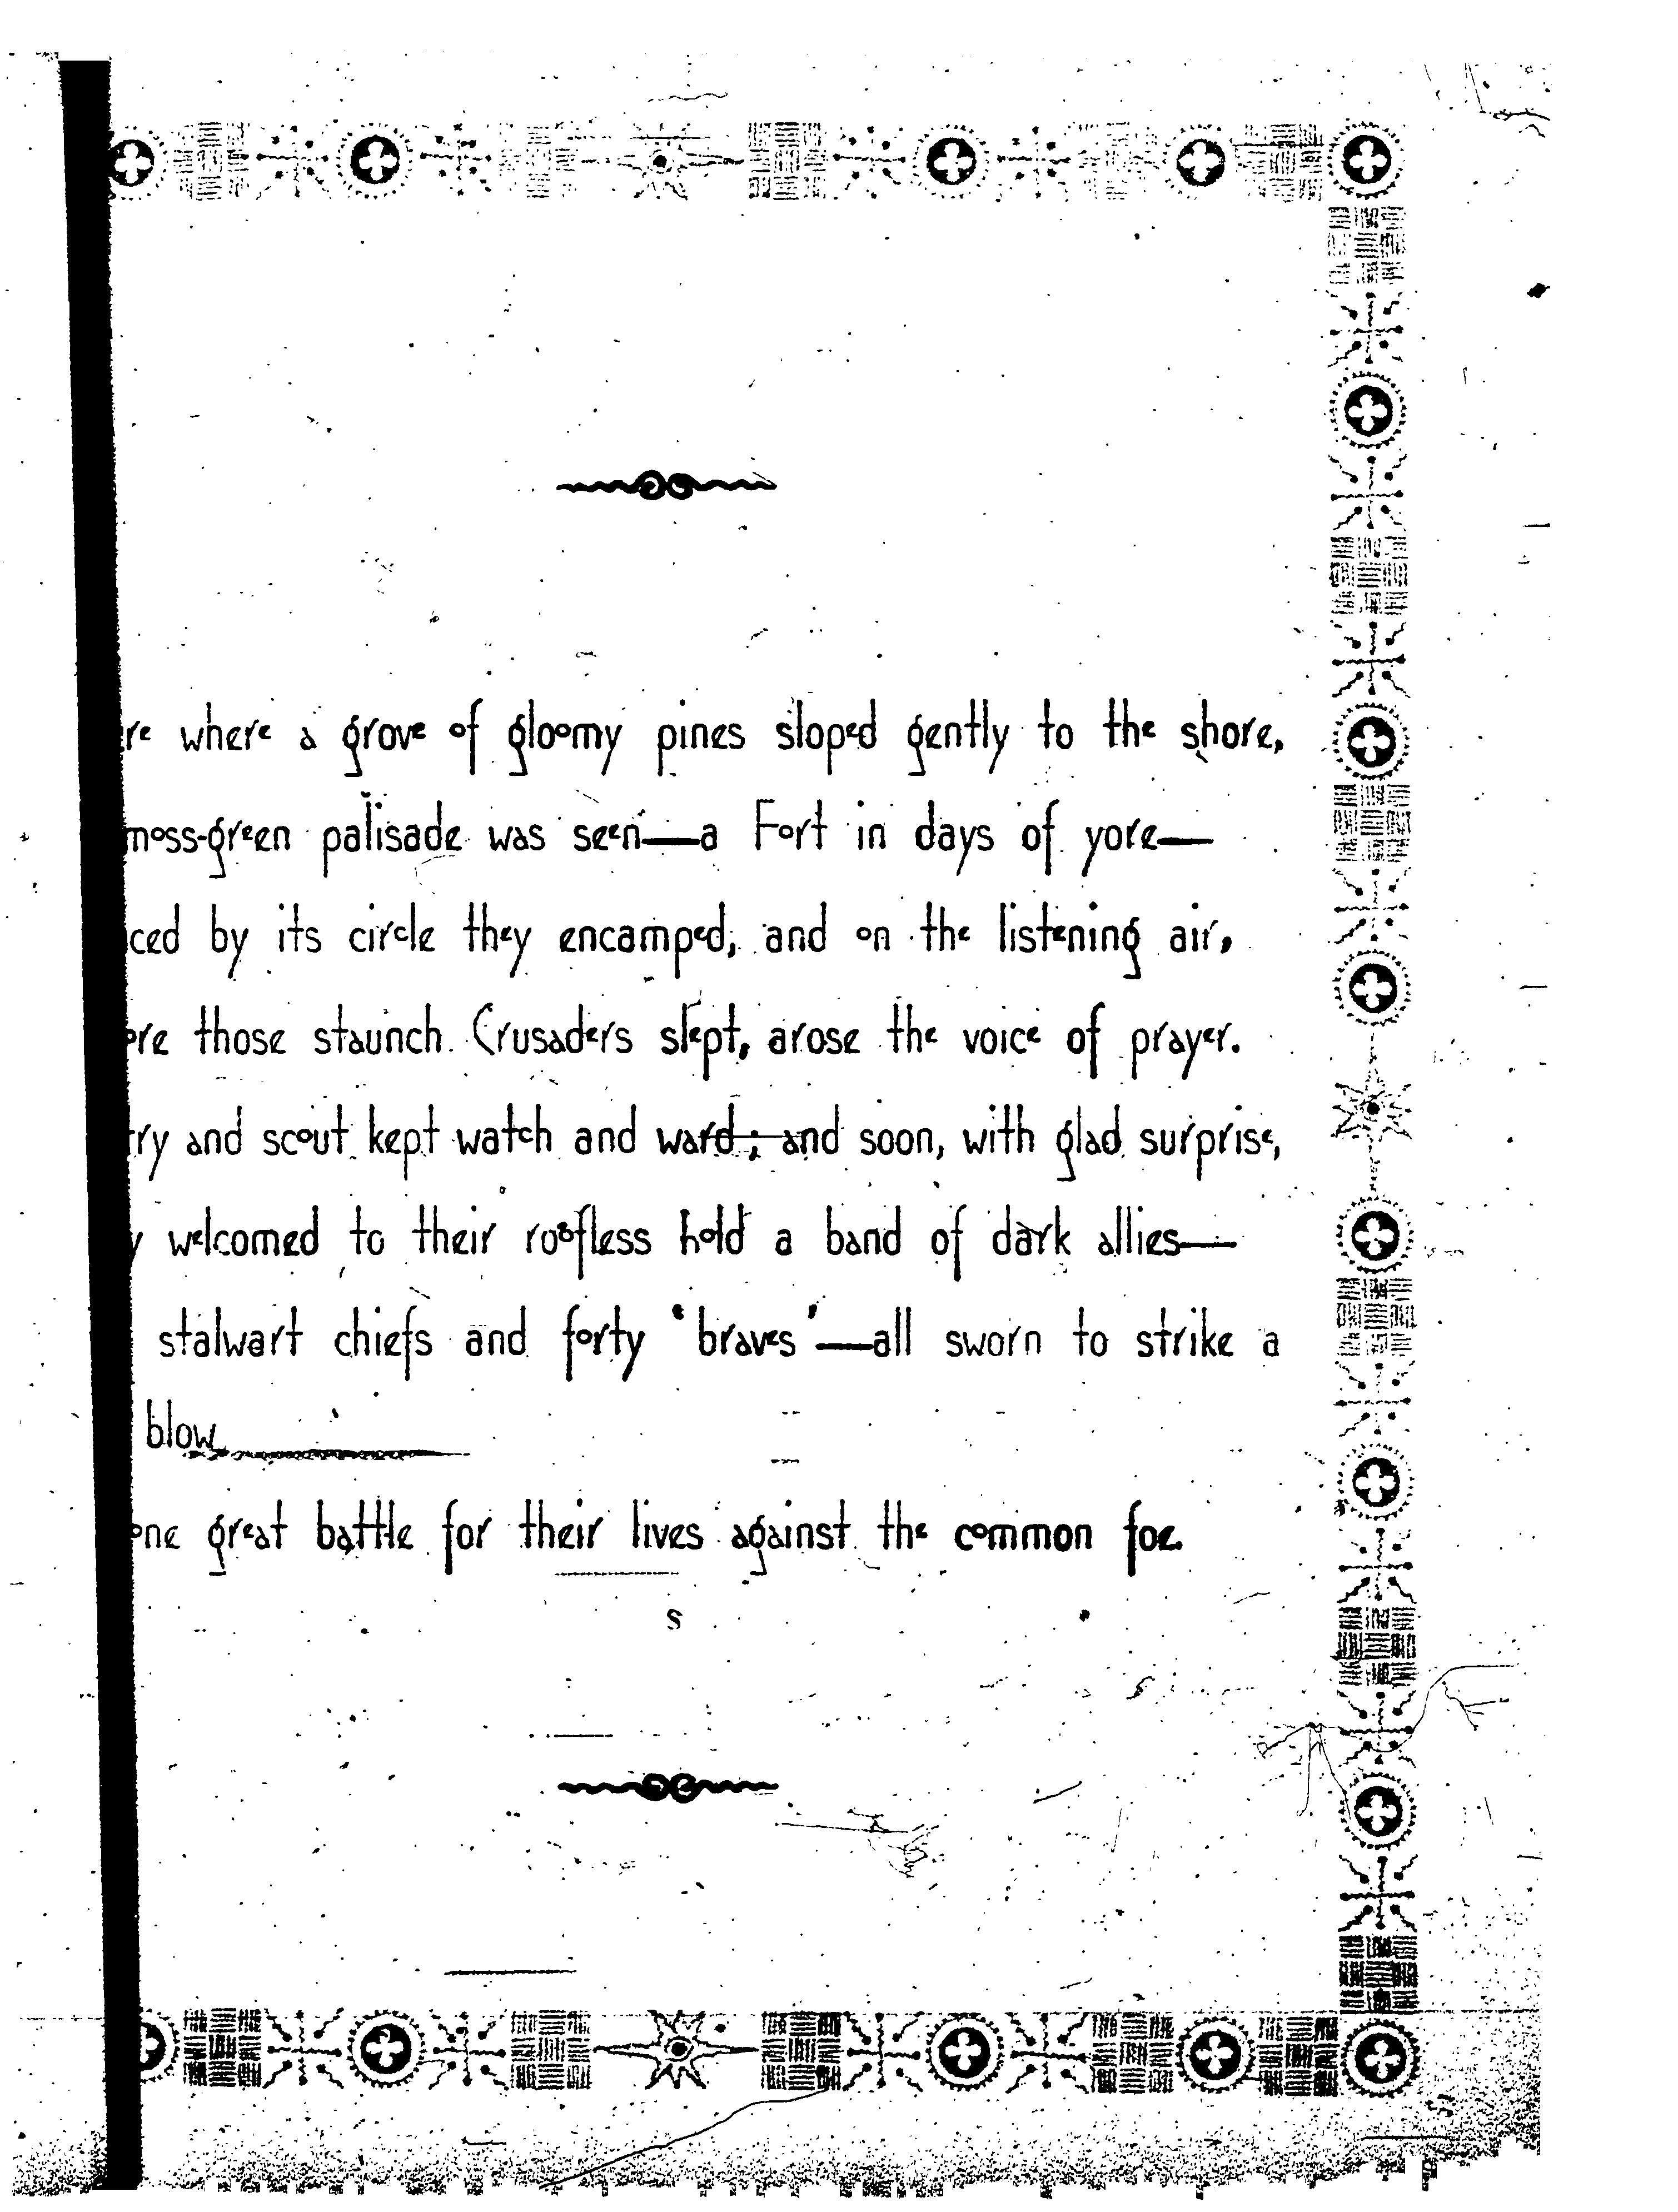 re where a grove of gloomy pines sloped gently to the shore,
moss-green palisade was seen—a Fort in days of yore—
ced by its circle they encamped, and on the listening air,
ore those staunch Crusaders slept, arose the voice of prayer.
try and scout kept watch and ward; and soon, with glad surprise,
y welcomed to their roofless hold a band of dark allies—
stalwart chiefs and forty 'braves'—all sworn to strike a
blow
one great battle for their lives against the common foe.
S